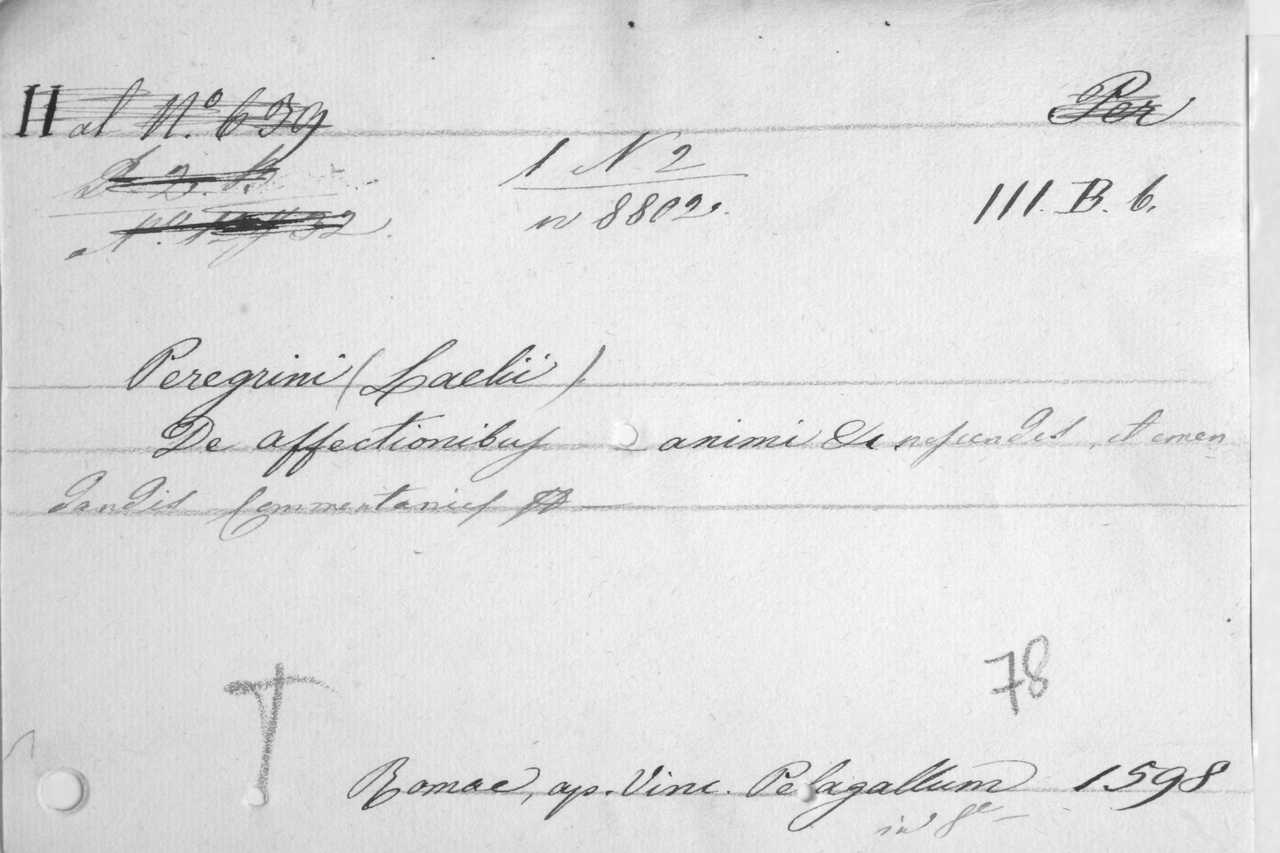 H al N.º 639 Per
1 N 2
III. B. 6.
n 8802.
Peregrini (Laelii)
De affectionibus animi noscendis, et emen
dandis Commentarius
78
Romae, ap. Vinc. Pelagallum 1598
in 8º